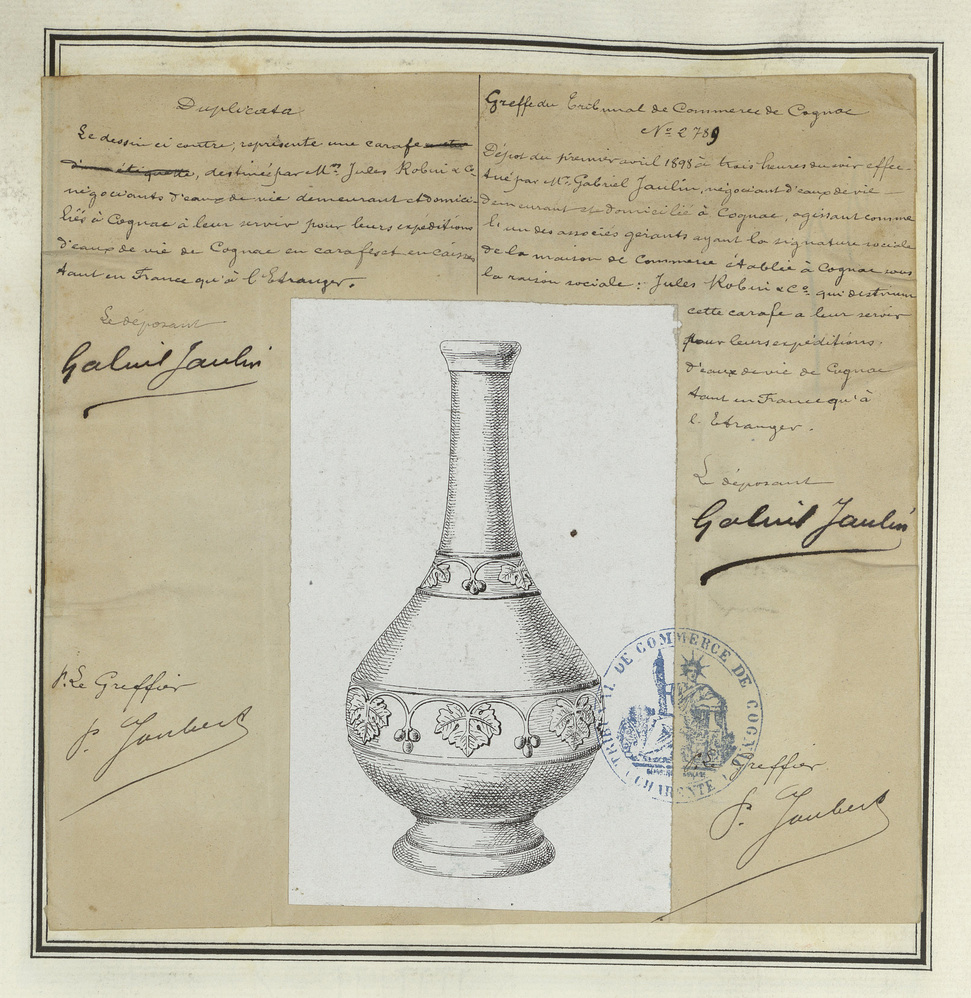 Duplicata
Le dessin ci contre, représente une carafe
d'une étiquette, destinée par Mrs Jules Robin & Co
négociants d'eaux de vie demeurant et domici-
liés à Cognac à leur servir pour leurs expéditions
d'eaux de vie de Cognac en carafes et en caisses
tant en France qu'à l'Etranger.
Le déposant
Gabriel Jaulin
P. Le Greffier
P. Joubert
Greffe du Tribunal de Commerce de Cognac
No 2789
Dépot du premier avril 1898 à trois heures du soir effec-
tué par Mr Gabriel Jaulin, négociant d'eaux de vie
demeurant et domicilié à Cognac, agissant comme
l'un des associés gérants ayant la signature sociale
de la maison de Commerce établie à Cognac sous
la raison sociale : Jules Robin & Co qui destinent
cette carafe a leur servir
pour leurs expéditions
d'eaux de vie de Cognac
tant en France qu'à
l'Etranger.
Le déposant
Gabriel Jaulin
TRIB AL DE COMMERCE DE COGNAC
(CHARENTE)
Greffier
P. Joubert